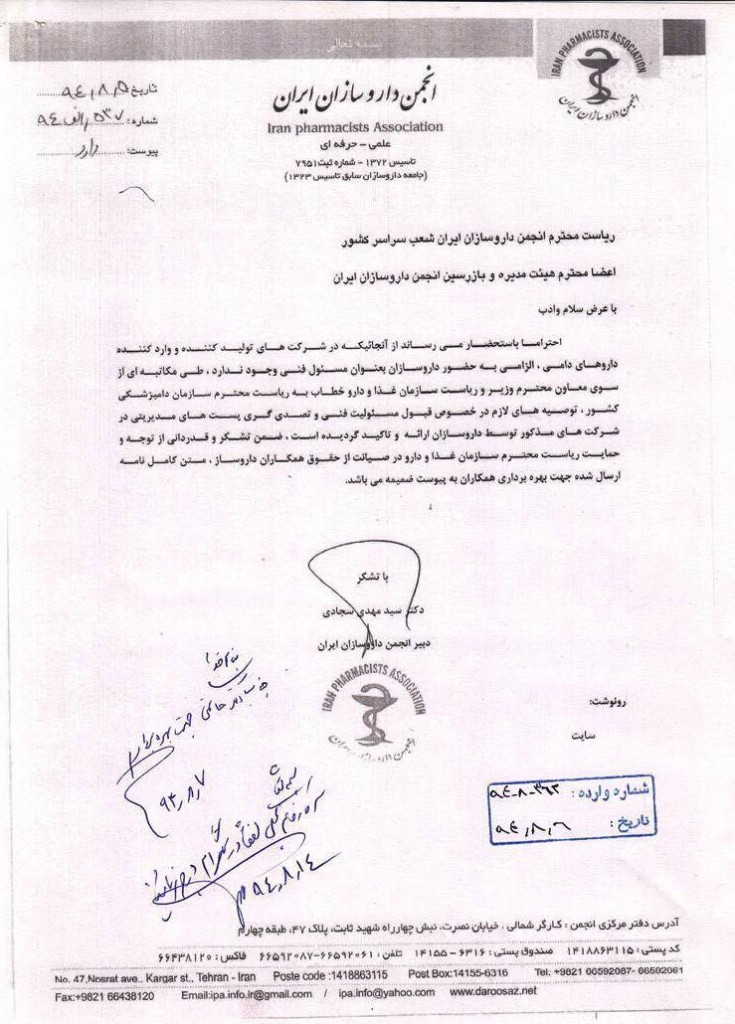 بسمه تعالی
IRAN PHARMACISTS ASSOCIATION
انجمن داروسازان ایران
تاریخ: ۹۴,۸,۵
شماره: ۵۳۷ ,الف, ۹۴
پیوست: دارد
انجمن داروسازان ایران
Iran pharmacists Association
علمی - حرفه ای
تاسیس ۱۳۷۲ - شماره ثبت ۷۹۵۱
(جامعه داروسازان سابق تاسیس ۱۳۲۳)
ریاست محترم انجمن داروسازان ایران شعب سراسر کشور
اعضا محترم هیئت مدیره و بازرسین انجمن داروسازان ایران
با عرض سلام وادب
احتراما باستحضار می رساند از آنجائیکه در شرکت های تولید کننده و وارد کننده
داروهای دامی ، الزامی به حضور داروسازان بعنوان مسئول فنی وجود ندارد ، طی مکاتبه ای از
سوی معاون محترم وزیر و ریاست سازمان غذا و دارو خطاب به ریاست محترم سازمان دامپزشکی
کشور ، توصیه های لازم در خصوص قبول مسئولیت فنی و تصدی گری پست های مدیریتی در
شرکت های مذکور توسط داروسازان ارائه و تاکید گردیده است . ضمن تشکر و قدردانی از توجه و
حمایت ریاست محترم سازمان غذا و دارو در صیانت از حقوق همکاران داروساز ، متن کامل نامه
ارسال شده جهت بهره برداری همکاران به پیوست ضمیمه می باشد.
با تشکر
دکتر سید مهدی سجادی
دبیر انجمن داروسازان ایران
IRAN PHARMACISTS ASSOCIATION
انجمن داروسازان ایران
رونوشت:
سایت
بنام خدا
جهت بهره برداری
۹۴,۸,۷
۹۴,۸,۱۴
شماره وارده : ۹۴-۸-۳۶۲
تاریخ : ۹۴,۸,۶
آدرس دفتر مرکزی انجمن : کارگر شمالی ، خیابان نصرت، نبش چهارراه شهید ثابت، پلاک ۴۷، طبقه چهارم
کد پستی : ۱۴۱۸۸۶۳۱۱۵ صندوق پستی : ۶۳۱۶ - ۱۴۱۵۵ تلفن : ۶۶۵۹۲۰۶۱-۶۶۵۹۲۰۸۷ فاکس : ۶۶۴۳۸۱۲۰
No. 47,Nosrat ave., Kargar st., Tehran - Iran Poste code :1418863115 Post Box:14155-6316 Tel: +9821 66592087- 66592061
Fax:+9821 66438120 Email:ipa.info.ir@gmail.com / ipa.info@yahoo.com www.daroosaz.net